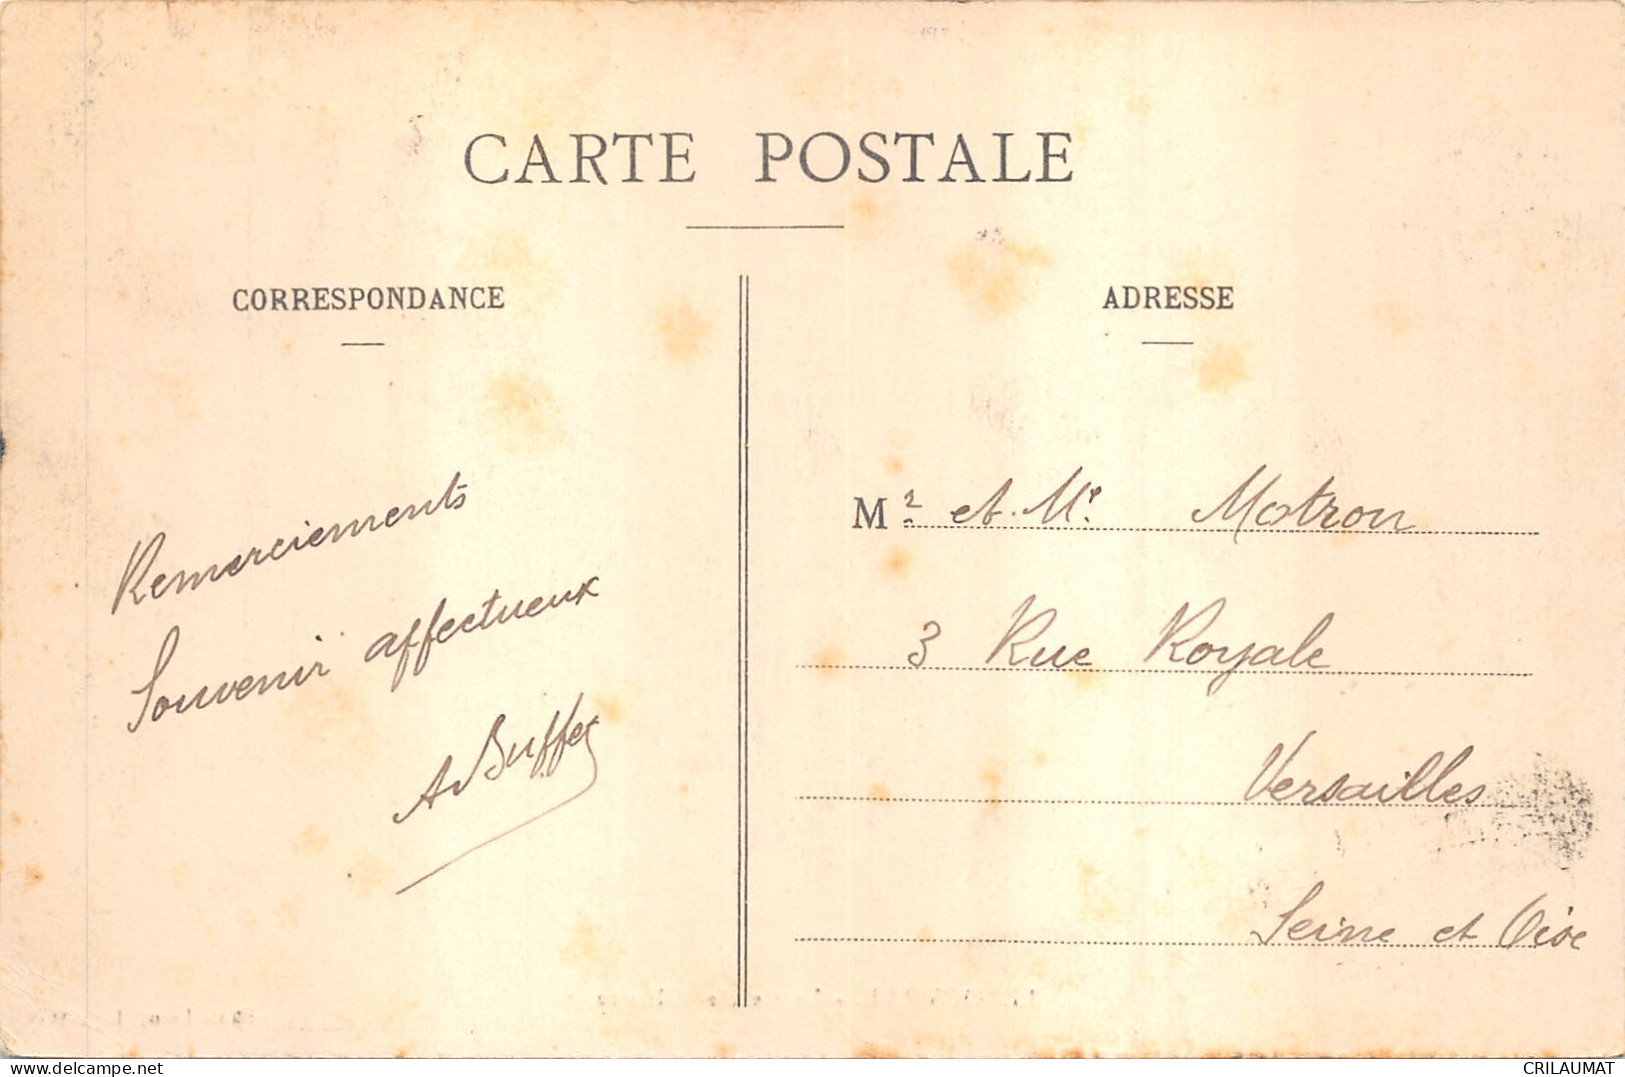 CARTE POSTALE
CORRESPONDANCE
ADRESSE
Remerciements
Souvenir affectueux
A Buffet
Mr et Me Motron
3 Rue Royale
Versailles
Seine et Oise
delcampe.net
CRILAUMAT